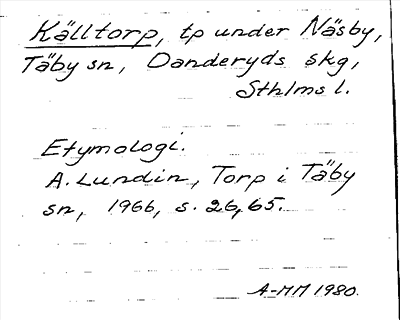 Källtorp, tp under Näsby,
Täby sn, Danderyds skg,
Sthlms l.
Etymologi.
A. Lundin, Torp i Täby
sn, 1966, s. 26, 65.
A-MM 1980.